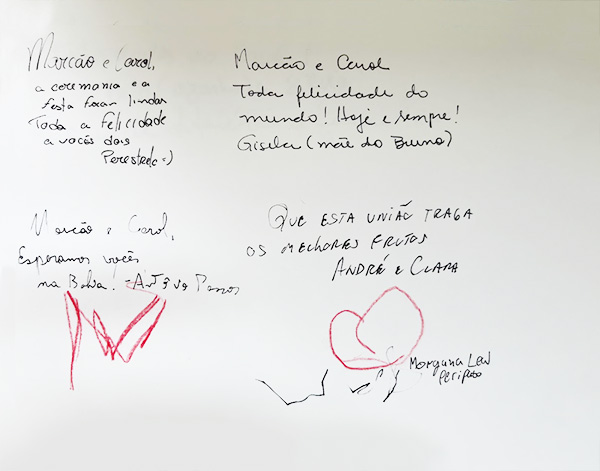 Marcão e Carol,
a ceremonia e a
festa foram lindas
Toda a felicidade
a vocês dois
Perestrelo :)
Marcão e Carol
Toda felicidade do
mundo! Hoje e sempre!
Gisela (mãe do Bruno)
Marcão e Carol,
Esperamos vocês
na Bahia! - Passos
QUE ESTA UNIÃO TRAGA
OS MELHORES FRUTOS
ANDRÉ E CLARA
Morgana